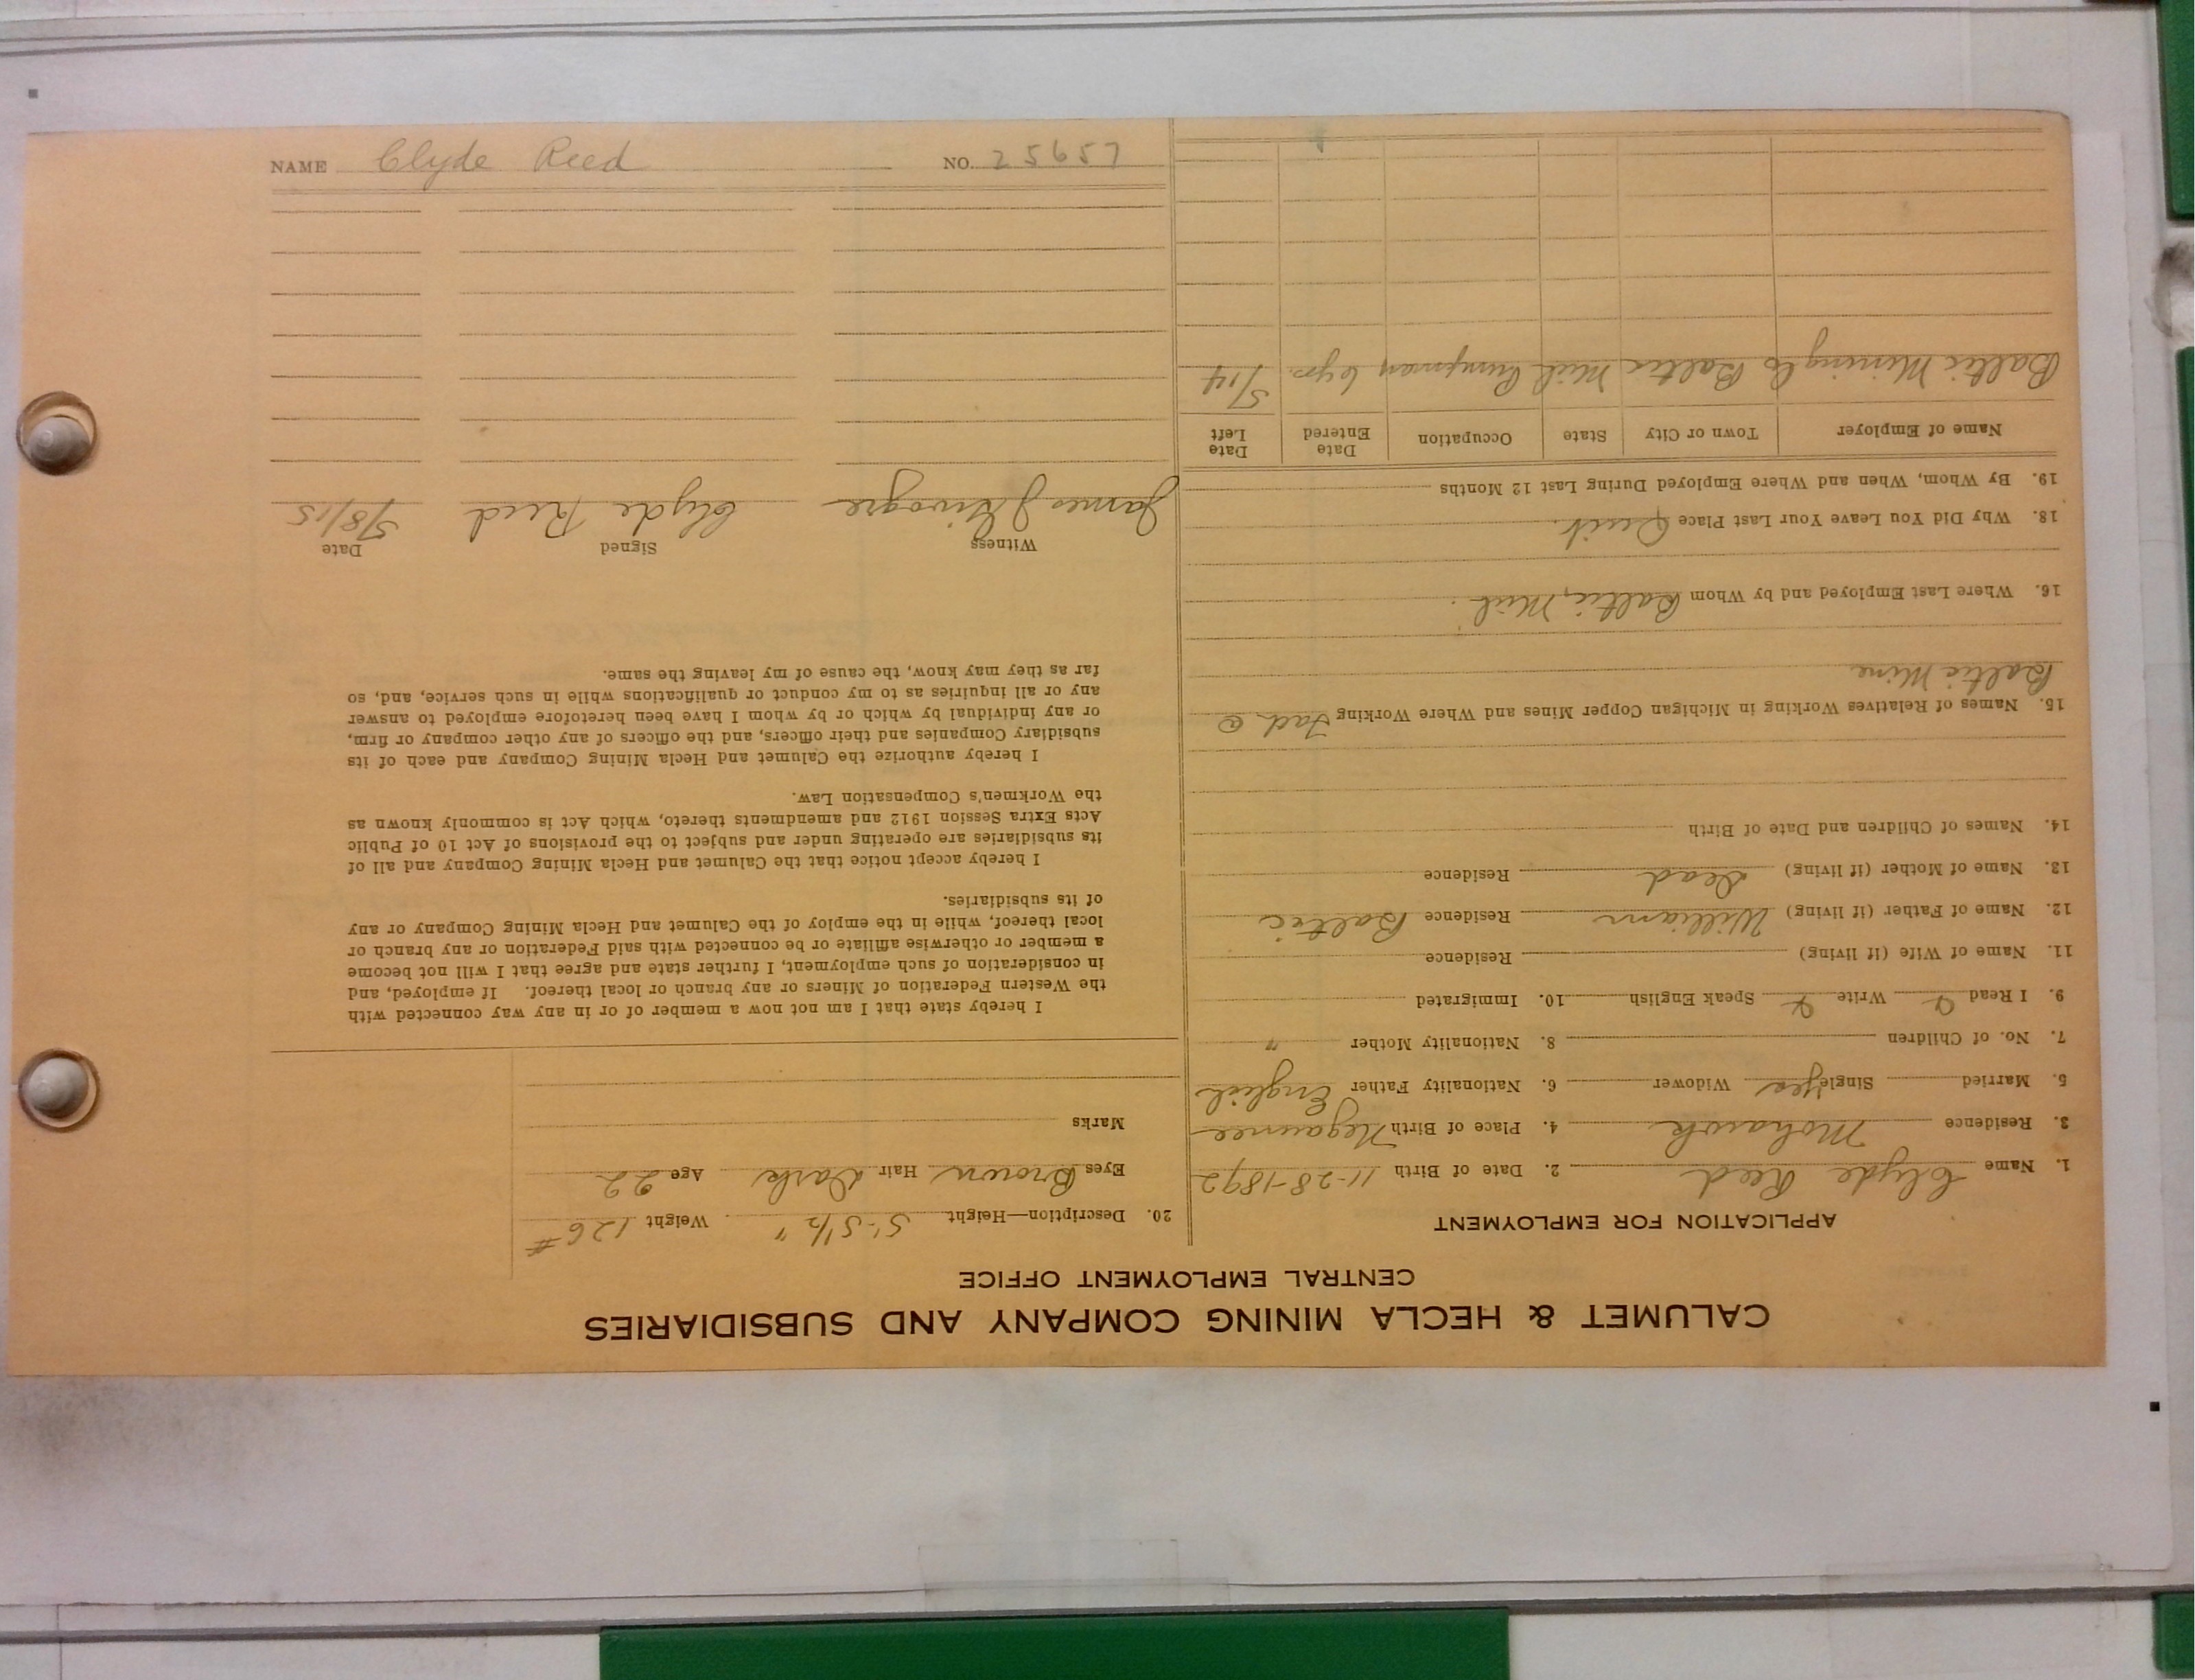 CALUMET & HECLA MINING COMPANY AND SUBSIDIARIES
CENTRAL EMPLOYMENT OFFICE
APPLICATION FOR EMPLOYMENT
1. Name Clyde Reed 2. Date of Birth 11-28-1892
3. Residence Mohawk 4. Place of Birth Negaunee
5. Married Single yes Widower 6. Nationality Father English
7. No. of Children 8. Nationality Mother "
9. I Read Y Write Y Speak English 10. Immigrated
11. Name of Wife (if living) Residence
12. Name of Father (if living) William Residence Baltic
13. Name of Mother (if living) Dead Residence
14. Names of Children and Date of Birth
15. Names of Relatives Working in Michigan Copper Mines and Where Working Fad @
Baltic Mine
16. Where Last Employed and by Whom Baltic, Mich.
18. Why Did You Leave Your Last Place Quit.
19. By Whom, When and Where Employed During Last 12 Months
Name of Employer Town or City State Occupation Date Entered Date Left
Baltic Mining Co Baltic Mich 6 yrs. 5/14
20. Description—Height 5'-5 1/2" Weight 126 #
Eyes Brown Hair Dark Age 22
Marks
I hereby state that I am not now a member of or in any way connected with
the Western Federation of Miners or any branch or local thereof. If employed, and
in consideration of such employment, I further state and agree that I will not become
a member or otherwise affiliate or be connected with said Federation or any branch or
local thereof, while in the employ of the Calumet and Hecla Mining Company or any
of its subsidiaries.
I hereby accept notice that the Calumet and Hecla Mining Company and all of
its subsidiaries are operating under and subject to the provisions of Act 10 of Public
Acts Extra Session 1912 and amendments thereto, which Act is commonly known as
the Workmen's Compensation Law.
I hereby authorize the Calumet and Hecla Mining Company and each of its
subsidiary Companies and their officers, and the officers of any other company or firm,
or any individual by which or by whom I have been heretofore employed to answer
any or all inquiries as to my conduct or qualifications while in such service, and, so
far as they may know, the cause of my leaving the same.
Witness Signed Date
James J Clyde Reed 5/8/15
NAME Clyde Reed NO. 25657